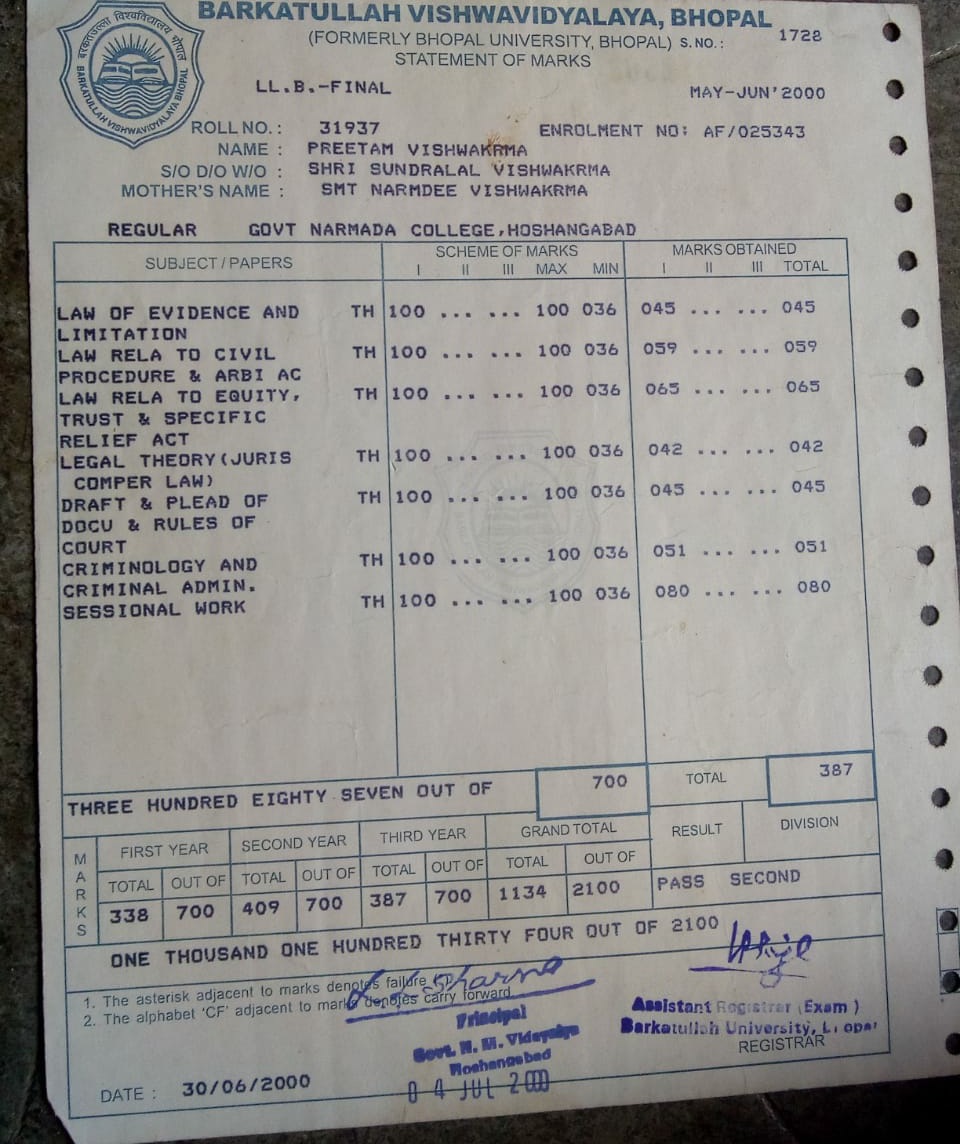 बरकतउल्ला विश्वविद्यालय भोपाल
BARKATULLAH VISHWAVIDYALAYA BHOPAL
BARKATULLAH VISHWAVIDYALAYA, BHOPAL
(FORMERLY BHOPAL UNIVERSITY, BHOPAL) S.NO.: 1728
STATEMENT OF MARKS
LL.B.-FINAL MAY-JUN'2000
ROLL NO.: 31937 ENROLMENT NO: AF/025343
NAME : PREETAM VISHWAKRMA
S/O D/O W/O : SHRI SUNDRALAL VISHWAKRMA
MOTHER'S NAME : SMT NARMDEE VISHWAKRMA
REGULAR GOVT NARMADA COLLEGE,HOSHANGABAD
SUBJECT / PAPERS SCHEME OF MARKS MARKS OBTAINED
I II III MAX MIN I II III TOTAL
LAW OF EVIDENCE AND TH 100 ... ... 100 036 045 ... ... 045
LIMITATION
LAW RELA TO CIVIL TH 100 ... ... 100 036 059 ... ... 059
PROCEDURE & ARBI AC
LAW RELA TO EQUITY, TH 100 ... ... 100 036 065 ... ... 065
TRUST & SPECIFIC
RELIEF ACT
LEGAL THEORY(JURIS TH 100 ... ... 100 036 042 ... ... 042
COMPER LAW)
DRAFT & PLEAD OF TH 100 ... ... 100 036 045 ... ... 045
DOCU & RULES OF
COURT
CRIMINOLOGY AND TH 100 ... ... 100 036 051 ... ... 051
CRIMINAL ADMIN.
SESSIONAL WORK TH 100 ... ... 100 036 080 ... ... 080
THREE HUNDRED EIGHTY SEVEN OUT OF 700 TOTAL 387
MARKS FIRST YEAR SECOND YEAR THIRD YEAR GRAND TOTAL RESULT DIVISION
TOTAL OUT OF TOTAL OUT OF TOTAL OUT OF TOTAL OUT OF
338 700 409 700 387 700 1134 2100 PASS SECOND
ONE THOUSAND ONE HUNDRED THIRTY FOUR OUT OF 2100
1. The asterisk adjacent to marks denotes failure
2. The alphabet 'CF' adjacent to marks denotes carry forward
Sharma
Principal
Govt. N. M. Vidyalya
Hoshangabad
04 JUL 2000
Assistant Registrar (Exam)
Barkatullah University,
REGISTRAR
DATE : 30/06/2000